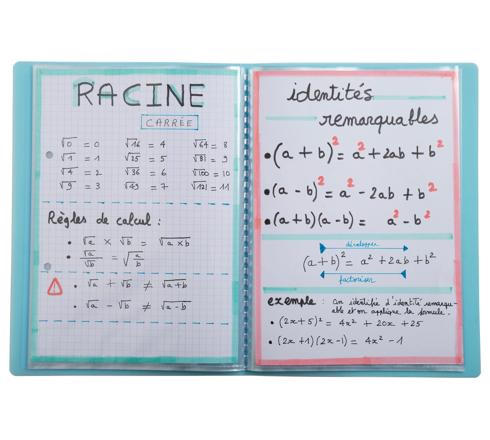 RACINE
CARRÉE
√0 = 0 √16 = 4 √64 = 8
√1 = 1 √25 = 5 √81 = 9
√4 = 2 √36 = 6 √100 = 10
√9 = 3 √49 = 7 √121 = 11
Règles de calcul :
• √a × √b = √a×b
• √a/√b = √a/b
• √a + √b ≠ √a+b
• √a - √b ≠ √a-b
identités
remarquables
• (a + b)² = a² + 2ab + b²
• (a - b)² = a² - 2ab + b²
• (a + b)(a - b) = a² - b²
développer
(a + b)² = a² + 2ab + b²
factoriser
exemple : on identifie l'identité remarqu-
able et on applique la formule.
• (2x + 5)² = 4x² + 20x + 25
• (2x + 1)(2x - 1) = 4x² - 1